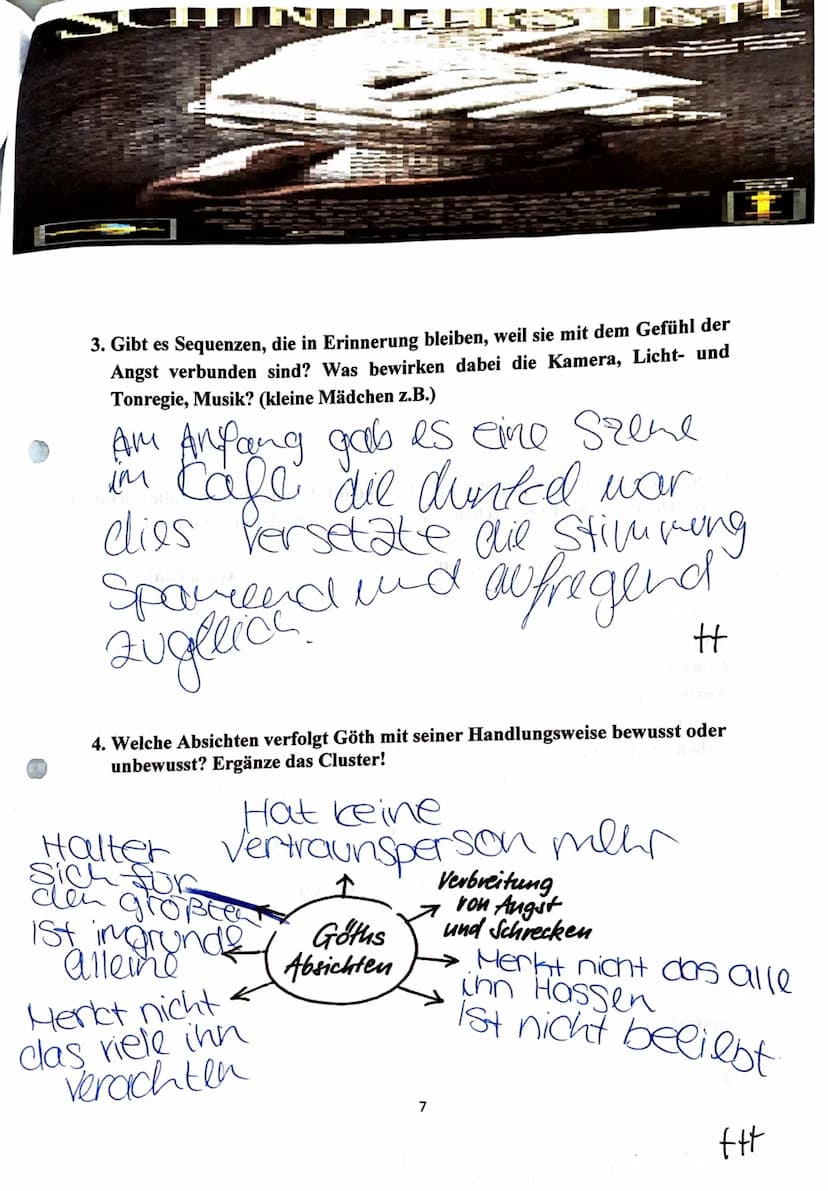 SCHINDLERS LISTE
3. Gibt es Sequenzen, die in Erinnerung bleiben, weil sie mit dem Gefühl der
Angst verbunden sind? Was bewirken dabei die Kamera, Licht- und
Tonregie, Musik? (kleine Mädchen z.B.)
Am Anfang gab es eine Szene
im Cafe die dunkel war
dies versetzte die Stimmung
Spannend und aufregend
zugleich.
H
4. Welche Absichten verfolgt Göth mit seiner Handlungsweise bewusst oder
unbewusst? Ergänze das Cluster!
Hat keine
vertraunsperson mehr
Halter
sich für
den größten
Verbreitung
von Angst
und Schrecken
Göths
Absichten
Ist ingrunde
alleine
Merkt nicht das alle
ihn Hassen
Ist nicht beeilebt
Merkt nicht
das viele ihn
verachten
7